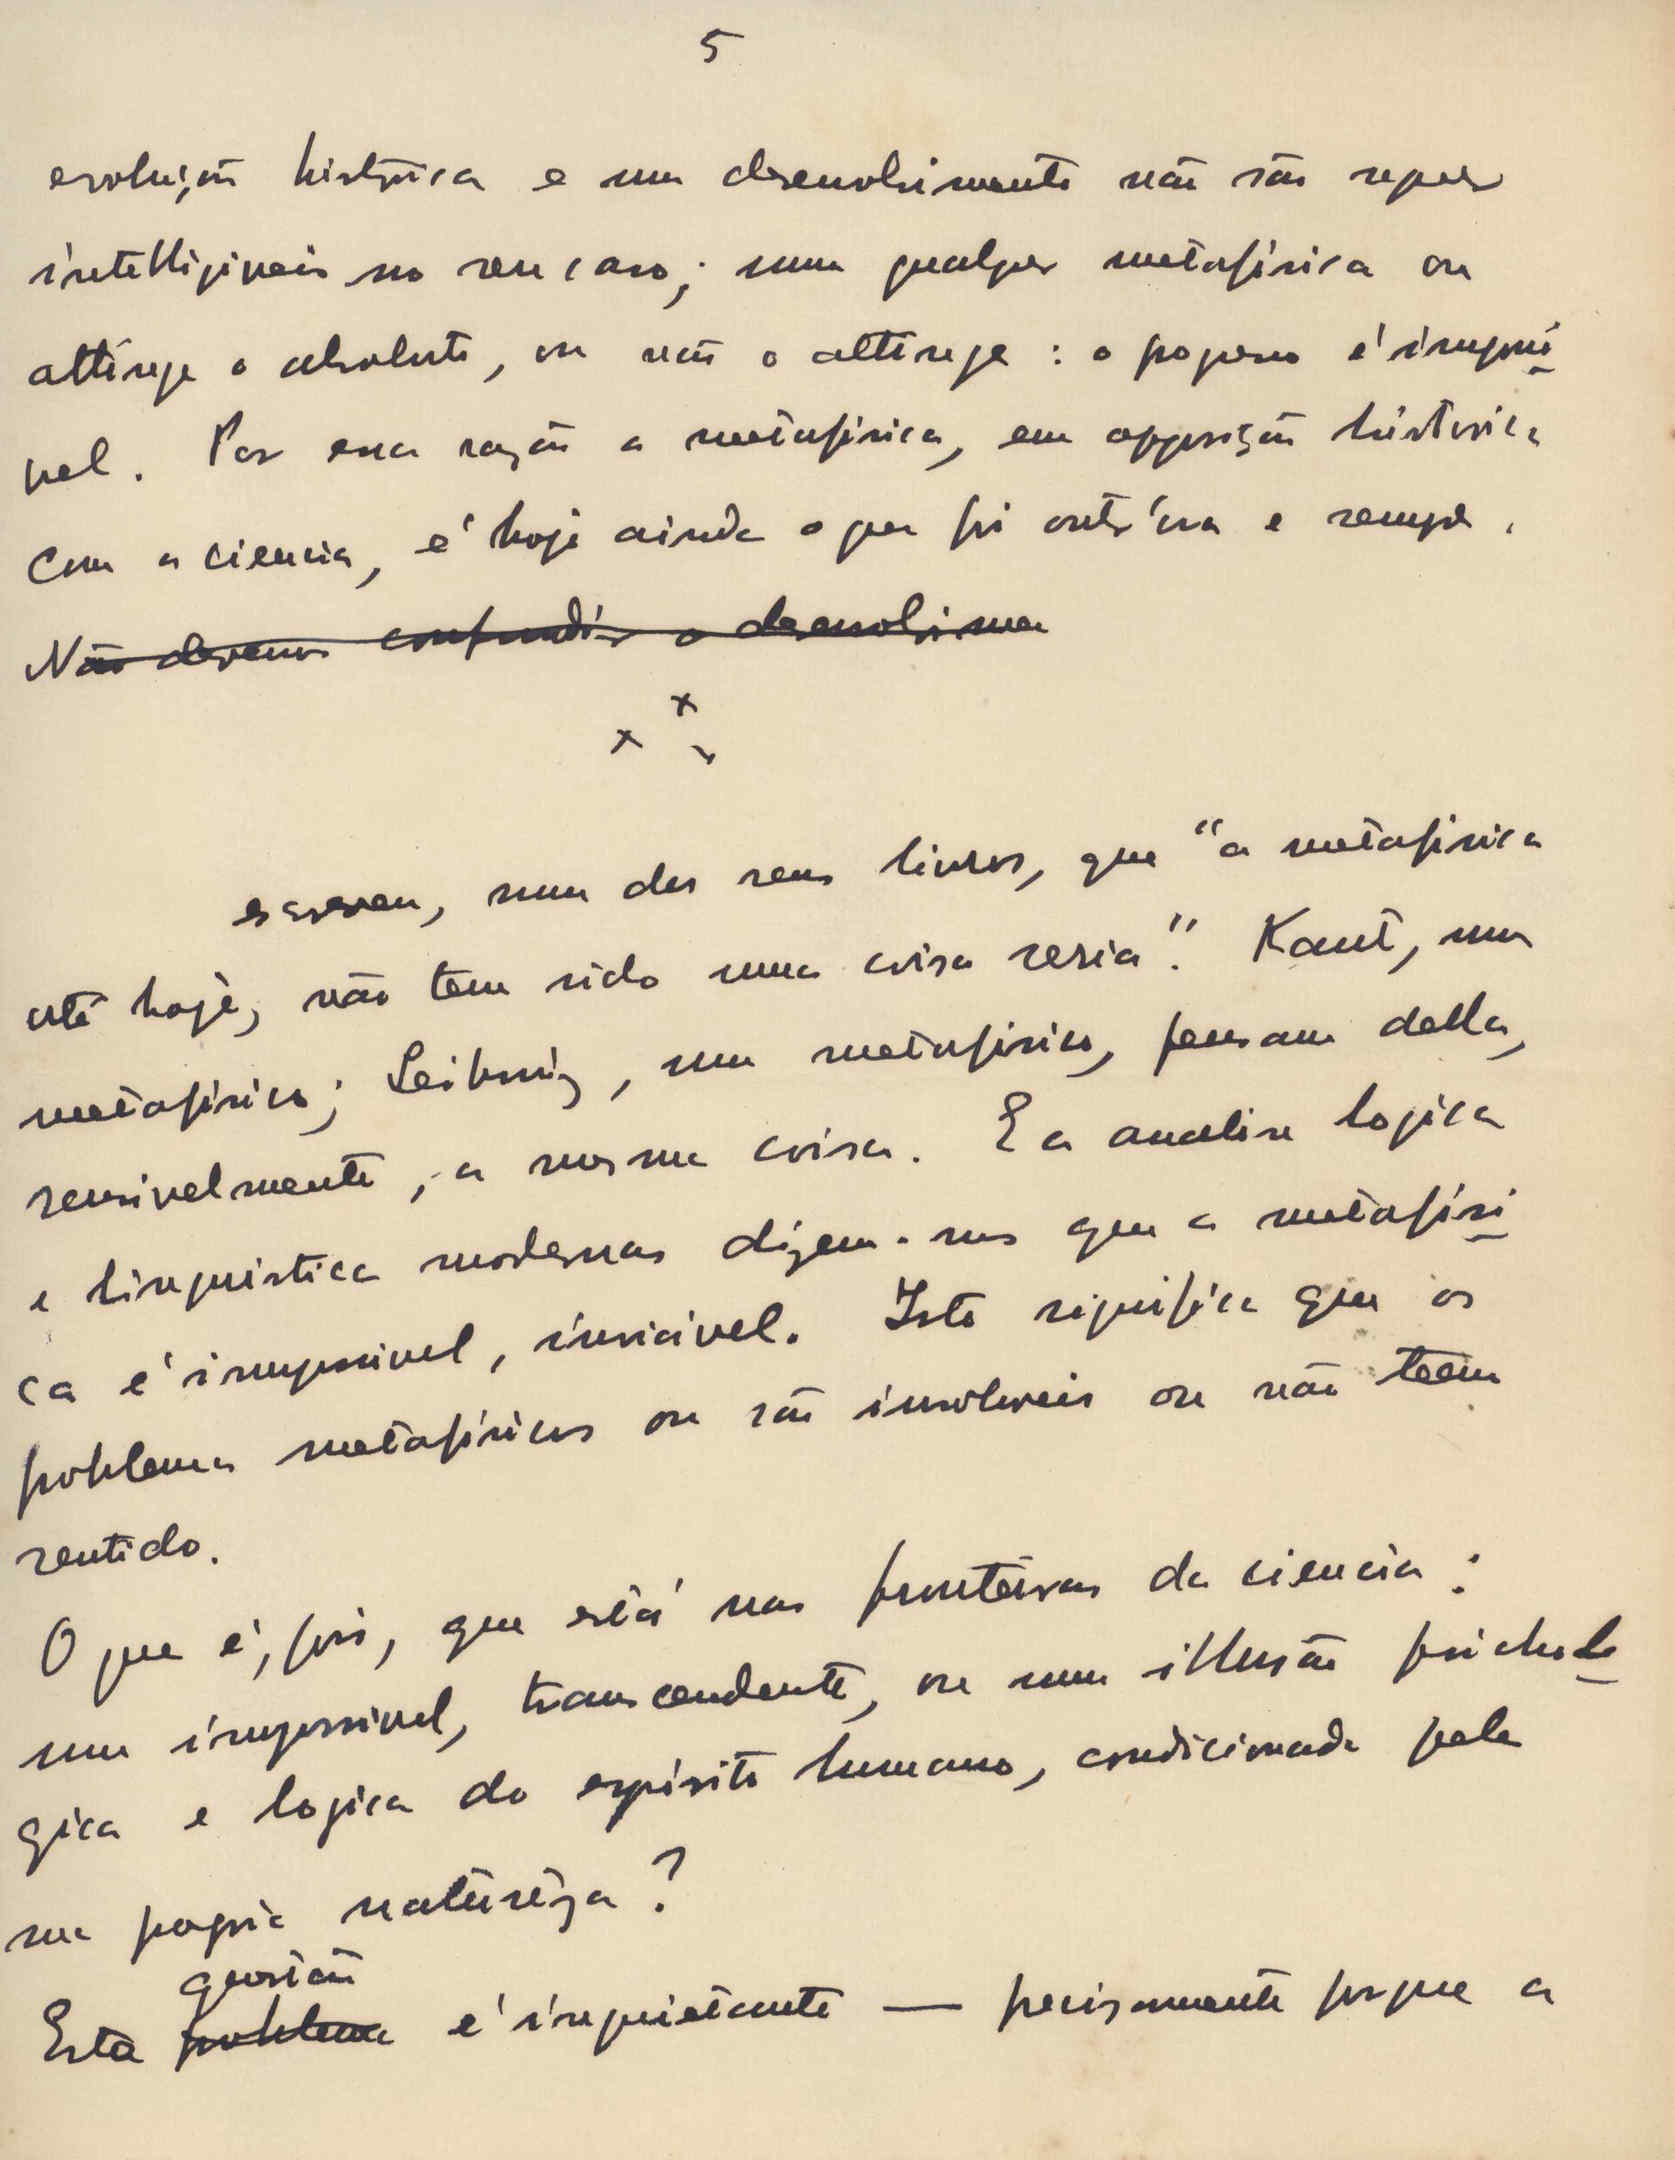 5
evolução histórica e um desenvolvimento não são sequer
intelligiveis no seu caso; uma qualquer metafisica ou
attinge o absoluto, ou não o attinge: o progresso é impossi
vel. Por essa razão a metafisica, em opposição historica
com a ciencia, é hoje ainda o que foi outróra e sempre.
Não devemos confundir o desenvolvimen
x x x
escreveu, num dos seus livros, que "a metafisica
até hoje, não tem sido uma coisa seria". Kant, um
metafisico; Leibniz, um metafisico, pensam della,
sensivelmente, a mesma coisa. E a analise logica
e linguistica modernas dizem-nos que a metafisi
ca é impossivel, inviavel. Isto significa que os
problemas metafisicos ou são insoluveis ou não teem
sentido.
O que é, pois, que está nas fronteiras da ciencia:
um impossivel, transcendente, ou uma illusão psicholo
gica e logica do espirito humano, condicionada pela
sua propria naturêza?
questão
Esta problema é inquietante — precisamente porque a